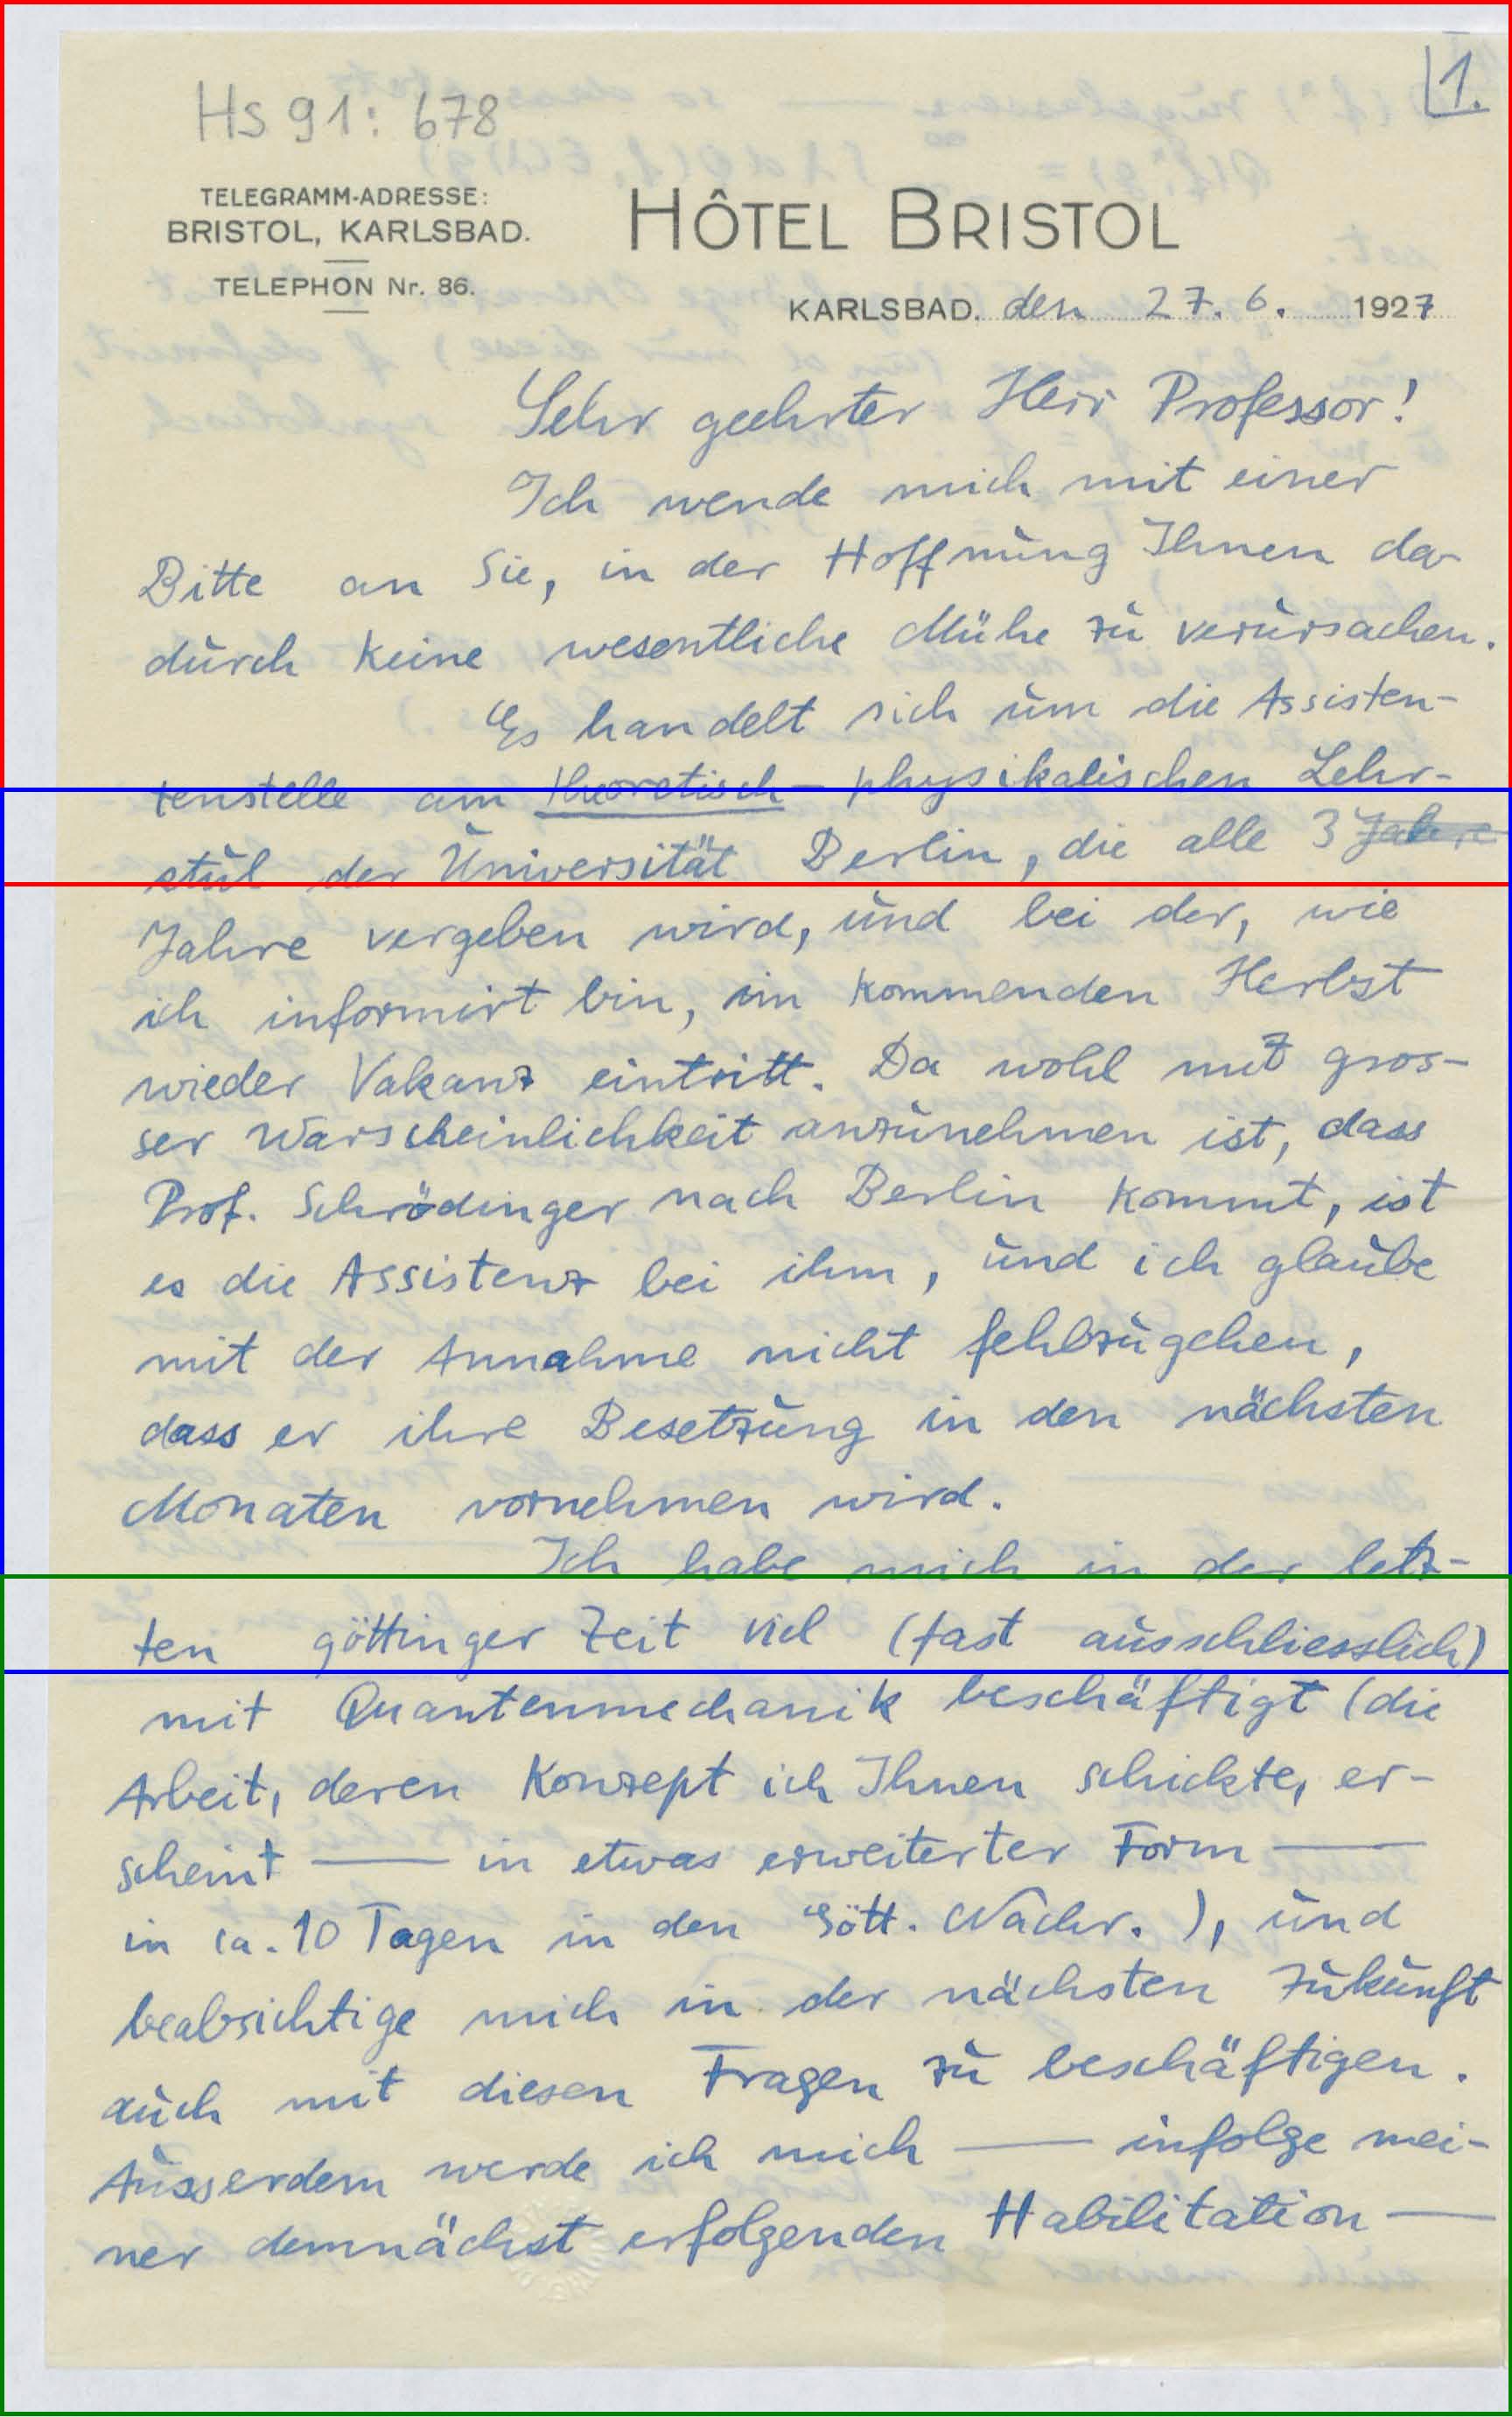 1.
Hs 91: 678
TELEGRAMM-ADRESSE:
BRISTOL, KARLSBAD.
TELEPHON Nr. 86.
HÔTEL BRISTOL
KARLSBAD, den 27. 6. 1927
Sehr geehrter Herr Professor!
Ich wende mich mit einer
Bitte an Sie, in der Hoffnung Ihnen da
durch keine wesentliche Mühe zu verursachen.
Es handelt sich um die Assisten-
tenstelle am theoretisch-physikalischen Lehr-
stul der Universität Berlin, die alle 3 Jahre
Jahre vergeben wird, und bei der, wie
ich informirt bin, im kommenden Herbst
wieder Vakanz eintritt. Da wohl mit gros-
ser Warscheinlichkeit anzunehmen ist, dass
Prof. Schrödinger nach Berlin kommt, ist
es die Assistenz bei ihm, und ich glaube
mit der Annahme nicht fehlzugehen,
dass er ihre Besetzung in den nächsten
Monaten vornehmen wird.
Ich habe mich in der letz-
ten göttinger Zeit viel (fast ausschliesslich)
mit Quantenmechanik beschäftigt (die
Arbeit, deren Konzept ich Ihnen schickte, er-
scheint — in etwas erweiterter Form —
in ca. 10 Tagen in den Gött. Nachr. ), und
beabsichtige mich in der nächsten Zukunft
auch mit diesen Fragen zu beschäftigen.
Ausserdem werde ich mich — infolge mei-
ner demnächst erfolgenden Habilitation —